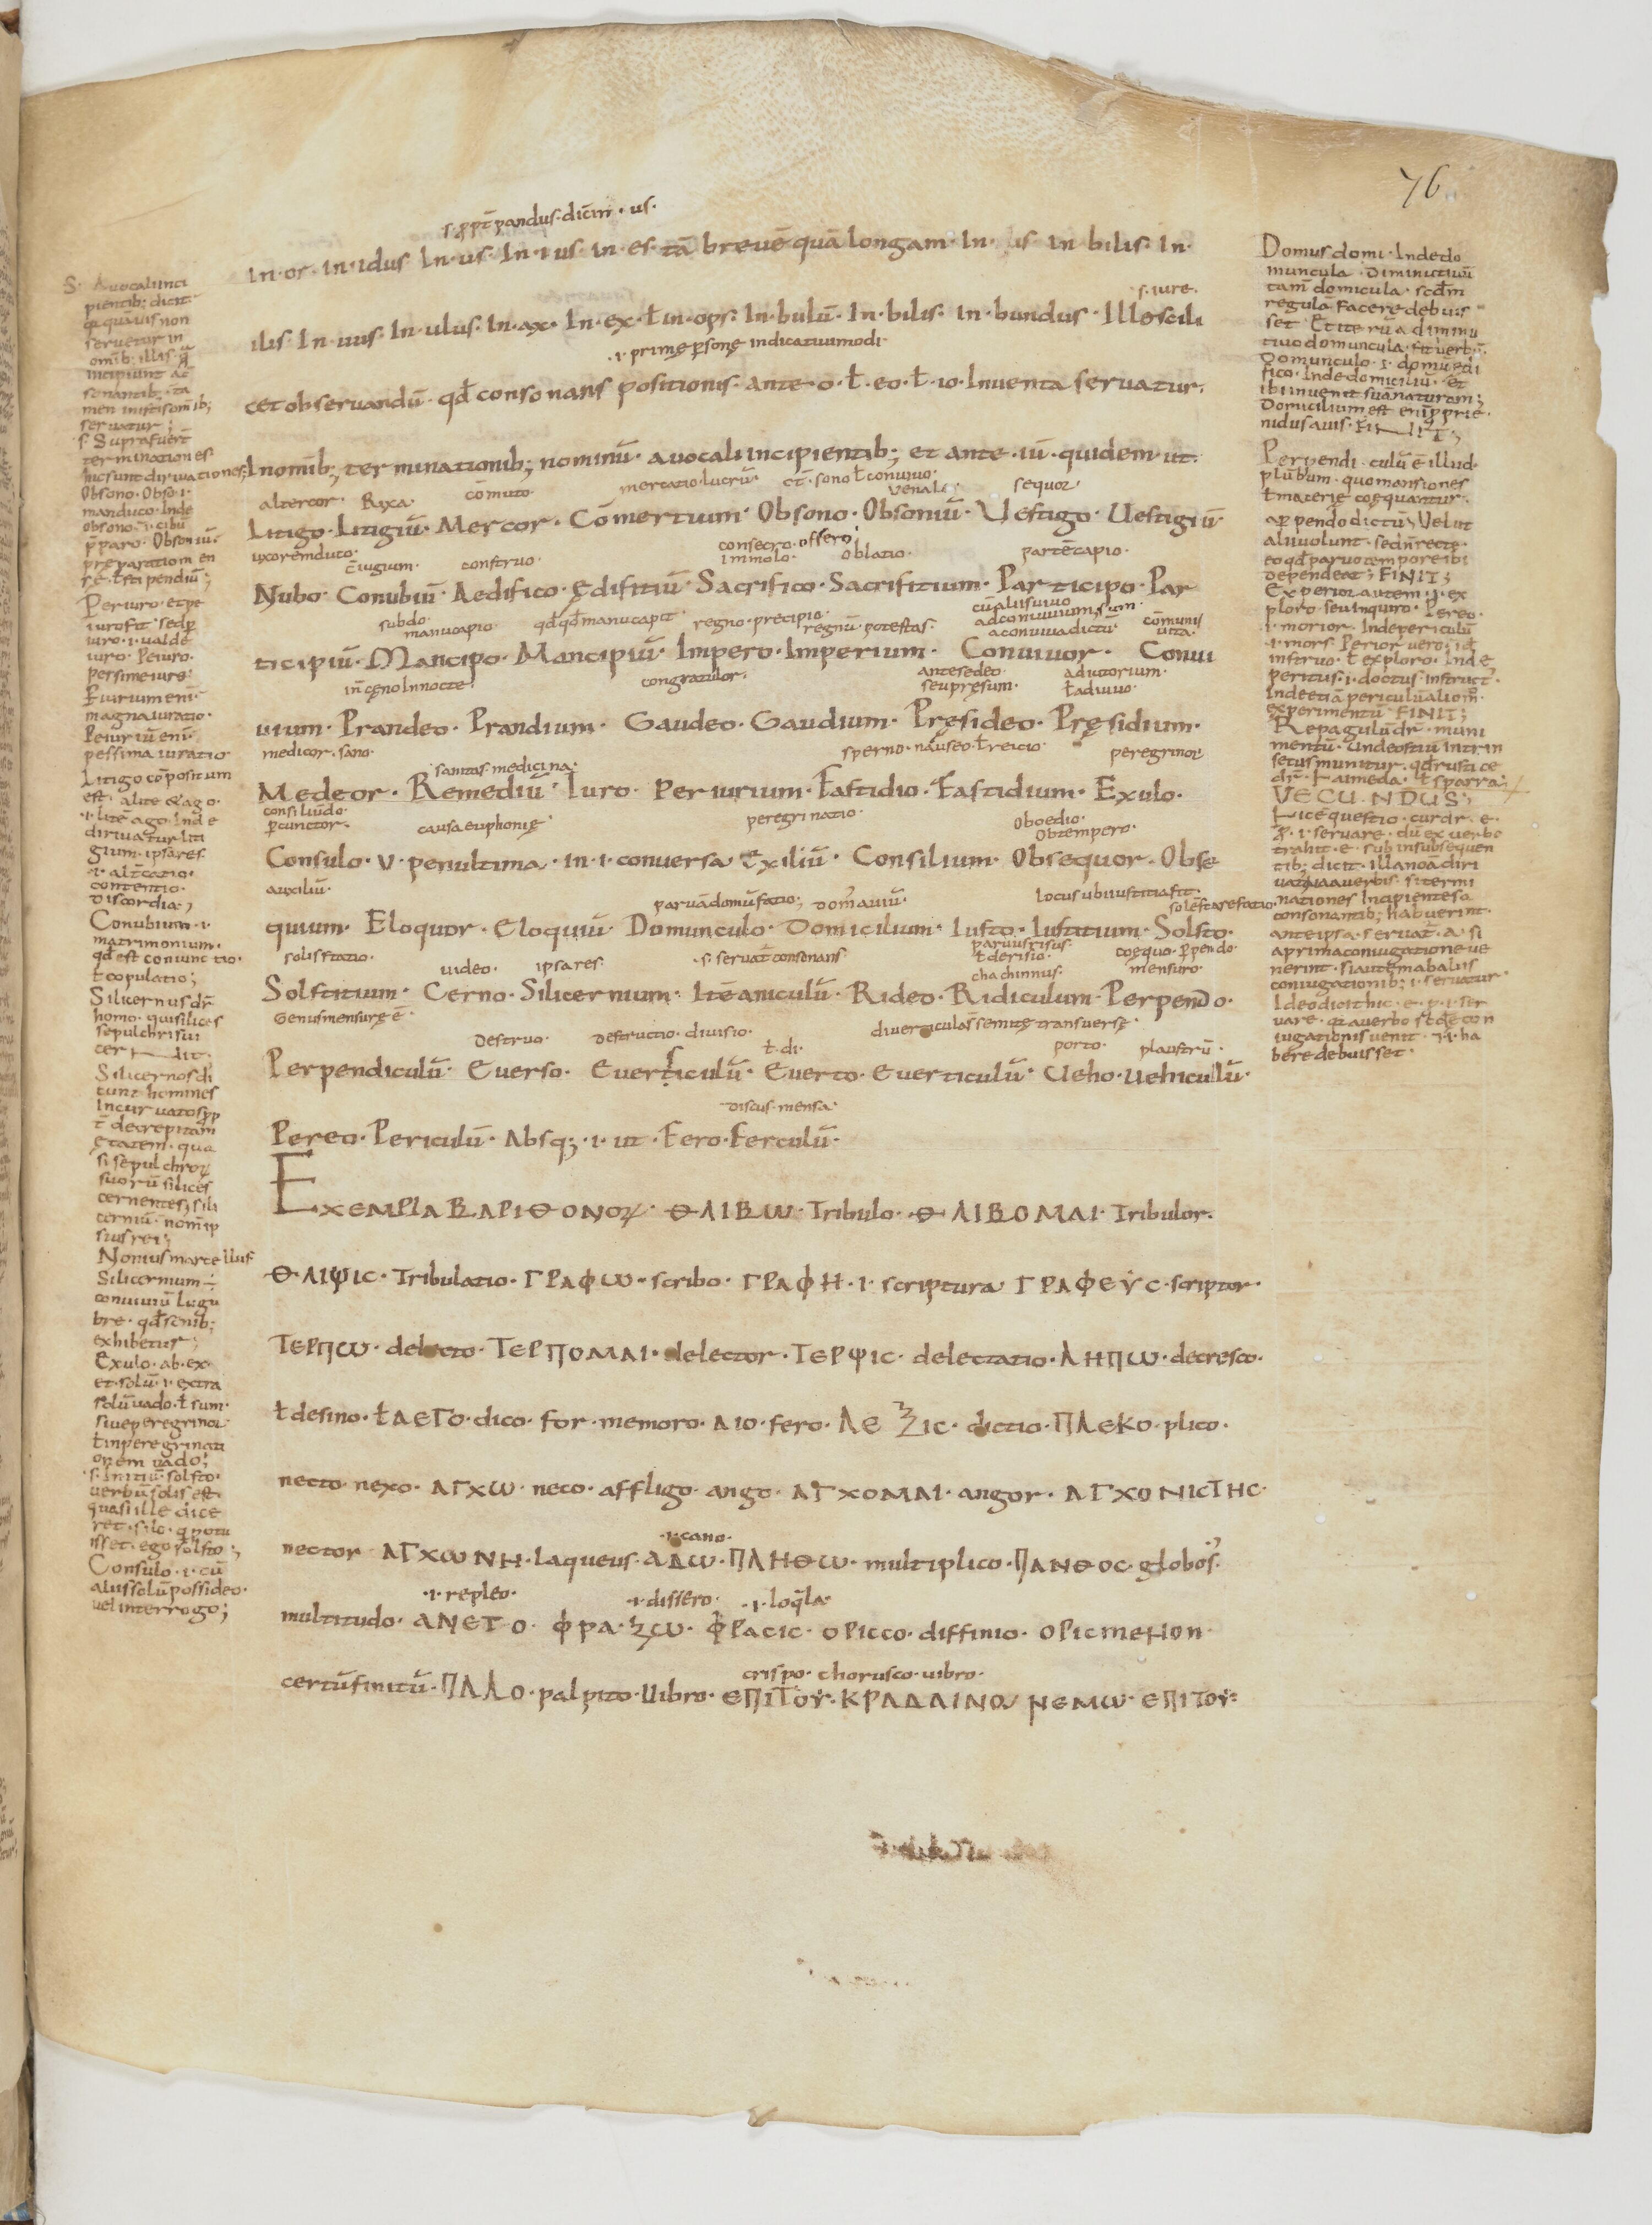 76
s. ꝓpt̄ pandus. dicim̄. us.
In. or. in. idus In. us. In. ius. in. es. tā brevē quā longam. In. is. in. bilis. In.
s. iure.
ilis. In. uus. In. ulus. In. ax. In. ex. ł in. ops. In. bulū. In. bilis. in. bundus. Illo scili
.i. primę ꝑsonę indicatiui modi.
cet observandū. qđ consonans positionis. ante. o. ł. eo. ł. io. Inventa servatur.
Inomīb; terminationib; nominū. avocali incipientib; et ante. iū. quidem. ut.
altercor. Rixa. cōmuto. mercatio. lucrū. cū. sono ł convivo. venale. sequor
Litigo. Litigiū. Mercor. Cōmertium. Obsono. Obsoniū. Uestigo. Uestigiū.
uxorem duco. ciugium. construo. consecro. offero. immolo. oblatio. partē capio.
Nubo. Conubiū. Aedifico. ędifitiū. Sacrifico. Sacrifitium. Participo. Par
subdo. manucapio. qđ qđ manu capit. regno. precipio. regnū. potestas. cū aliis vivo ad convivium sum. a convivia dictū. cōmunis vita.
ticipiū. Mancipo. Mancipiū. Impero. Imperium. Convivor. Convi
in cęno In nocte. congratulor. antesedeo. seu presum. adiutorium. ł adiuvo.
uium. Prandeo. Prandium. Gaudeo. Gaudium. Pręsideo. Pręsidium.
medicor. sano. sanitas. medicina. sperno. nauseo. ł reicio. peregrinor
Medeor. Remediū. Iuro. Periurium. Fastidio. Fastidium. Exulo.
consiliū do. ꝑcunctor. causa euphonię. peregrinatio. Oboedio. Obtempero.
Consulo. v. penultima. in. i. conversa Exiliū. Consilium. Obsequor. Obse
auxiliū. parvā domū facio; locus ubi iustitia fit. sole stare facio.
quium. Eloquor. Eloquiū. Domunculo. Domicilium. Iusto. Iustitium. Solsto.
solis statio. video. ipsa res. s. servat consonans. parvus risus. ł derisio. chachinnus. coequo. ꝑpendo. mensuro.
Solstitium. Cerno. Silicernium. Itē aniculū. Rideo. Ridiculum. Perpendo.
Genus mensurę ē. Destruo. Destructio. divisio. ł. di. diverticula s̄ semitę transversę. porto. plaustrū.
Perpendiculū. Everso. Everticulū. Everto. Everticulū. Ueho. Uehiculū.
Discus. mensa.
Pereo. Periculū. Absq; .i. ut. Fero. Ferculū.
Exempla ΒΑΡΙΘΟΝΟꝝ. ΘΛΙΒω. Tribulo. ΘΛΙΒΟΜΑΙ. Tribulor.
ΘΛΙΨΙC. Tribulatio. ΓΡΑΦω. scribo. ΓΡΑΦΗ. i. scriptura ΓΡΑΦΕΥC. scriptor.
ΤΕΡΠω. delecto. ΤΕΡΠΟΜΑΙ. delector. ΤΕΡΨΙC. delectatio. ΛΗΠω. decresco.
ł desino. ł ΛΕΓΟ. dico. for. memoro. aio. fero. ΛΕξΙC. dictio. ΠΛΕΚΟ. plico.
necto. nexo. ΑΓΧω. neco. affligo. ango. ΑΓΧΟΜΑΙ. angor. ΑΓΧΟΝΙCΤΗC.
.i. cano.
nector ΑΓΧωΝΗ. laqueus. ΑΔω. ΠΛΗΘω. multiplico. ΠΑΝΘΟC. globos.
.i. repleo. .i. dissero. .i. loq̄la.
multitudo. ΑΝΕΤΟ. ΦΡΑζω. ΦΡΑCΙC. ΟΡΙCCΟ. diffinio. ΟΡΙCΜΕΝΟΝ
crispo. chorusco. vibro.
certū finitū. ΠΑΛΟ. palpito. Uibro. ΕΠΙΤΟΥ. ΚΡΑΔΑΙΝω ΝΕΜω. ΕΠΙΤΟΥ:
S. Avocali inci
pientib; dicit
quāvis non
servetur in
omīb; illis. q̄
incipiunt a cō
sonantib; ta
men in istis omīb;
servatur;
s. Supra fuer̄
terminationes
hic sunt dirivationes;
Obsono. Obso. i.
manduco. Inde
obsono. i. cibū
p̄paro. Obsoniū.
preparationem
Periuro. et pe
iuro fit. sed ꝑ
iuro. i. valde
iuro. Peiuro.
pessime iuro.
Periurium enī.
magna iuratio.
Peiuriū enī.
pessima iuratio
Litigo cōpositum
est. a lite &ago.
.i. lite ago. Inde
dirivatur liti
gium. ipsa res.
.i. altcatio.
contentio.
Discordia;
Conubium. i.
matrimonium.
qđ est coniunctio.
ł copulatio;
Silicernus dr̄
homo. qui silices
sepulchri sui
cernit.
Silicernos di
cunt homines
Incurvatos ꝓp
ł decrepitam
ętatem. qua
si sepulchroꝝ
suorū silices
cernentes; sili
cerniū. nomīp
sius rei;
Nonius marcellus
Silicernium ÷
conviviū lugu
bre. qđ senib;
exhibetur;
Exulo. ab. ex.
et. solū. i. extra
solū vado. ł sum.
sive peregrinor
ł in peregrinati
onem vado;
s. Initiū. solsto.
verbū solis est.
quasi ille dice
ret. silo. q̄ potu
isset. ego solsto;
Consulo. i. cū
aliis solū possideo.
vel interrogo;
Domus domi. Inde do
muncula. Diminutivū
tam̄ domicula. scđm
regulā facere debuis
set. Et iterū a diminu
tivo domuncula. fit verbū.
Domunculo. i. domū edi
fico. Inde domiciliū. et
ibi invenit suā naturam;
Domicilium est enī ꝓprie.
nidus avis. FINIT;
Perpendiculū ē illud.
plūbum. quo mansiones
ł macerię coequantur.
a ꝑpendo dictū; Velut
alii volunt. sed n̄ recte.
eo qđ parvo tempore ibi
dependeat; FINIT;
Experior autem. i. ex
ploro. seu inquiro. Pereo.
i. morior. Inde periculū
.i. mors. Perior vero. id
instruo. ł exploro. Inde
peritus. i. doctus. instruct̄.
Inde etiā periculū alioꝝ.
experimentū FINIT;
Repagulū dr̄. muni
mentū. unde ostiū intrin
secus munitur. qđ rustice
dr̄. ł sparra;
VECUNDUS;
Hic questio. cur dr̄. e.
p. i. servare. dū ex verbo
trahit. e. sub insubsequen
tib; dicit. illa noā diri
vativa a verbis. si termi
nationes Incipientes a
consonantib; habuerint.
ante ipsa. servat̄. a. si
a prima coniugatione ve
nerint. si autem ab aliis
coniugationib; i. servatur.
Ideo dicit hic. e. p. i. ser
vare. qa verbo scđe con
iugationis venit. ha
bere debuisset.